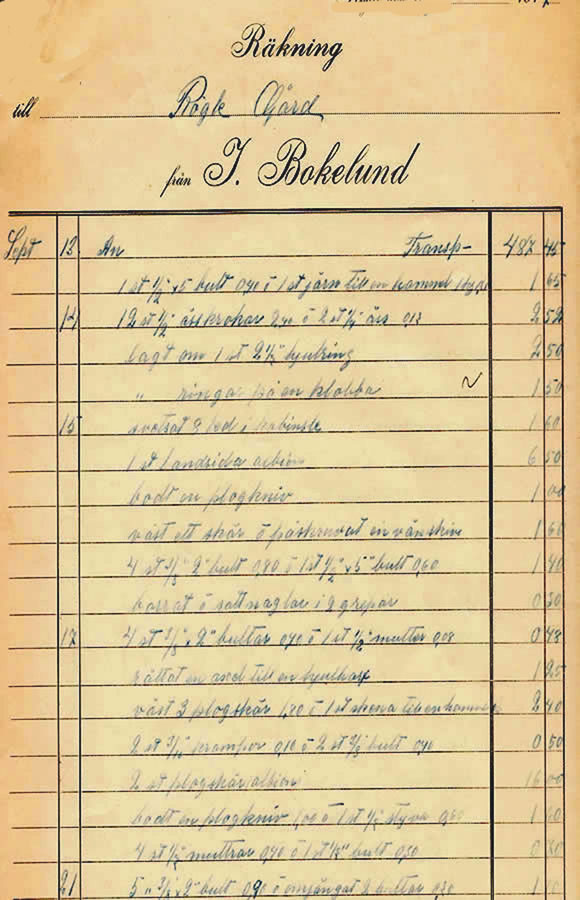 Räkning
till Rögle Gård
från J. Bokelund
Sept 13 An Transp- 487 45
1 st 1/2" x 5" bult 0,40 o 1 st järn till en hammel 1 65
14 12 st 1/2" öskrokar 2,40 o 2 st 1/4" ös 0,12 2 52
lagt om 1 st 2 1/2" hjulring 2 50
" ringa på en klobba 1 50
15 1 60
1 st landsida albion 6 50
bodt en plogkniv 1 00
väst ett skär o påskruvat en vändskiva 1 60
4 st 3/8" 2" bult 0,80 o 1 st 1/2" x 5" bult 0,60 1 40
borrat o satt naglar i 2 grepar 0 30
17 4 st 3/8" x 2" bultar 0,40 o 1 st 1/2" mutter 0,08 0 48
rättat en axel till en 1 25
väst 3 plogskär 1,20 o 1 st skena till en hammel 2 40
2 st krampor 0,10 o 2 st 3/8" bult 0,40 0 50
2 st plogskär albion 16 00
bodt en plogkniv 1,00 o 1 st 1/2" 0,60 1 60
4 st 1/2" muttrar 0,40 o 1 st bult 0 80
21 5 " 3/8" x 2" bult 0,90 o omgängat 2 bultar 0,30 1